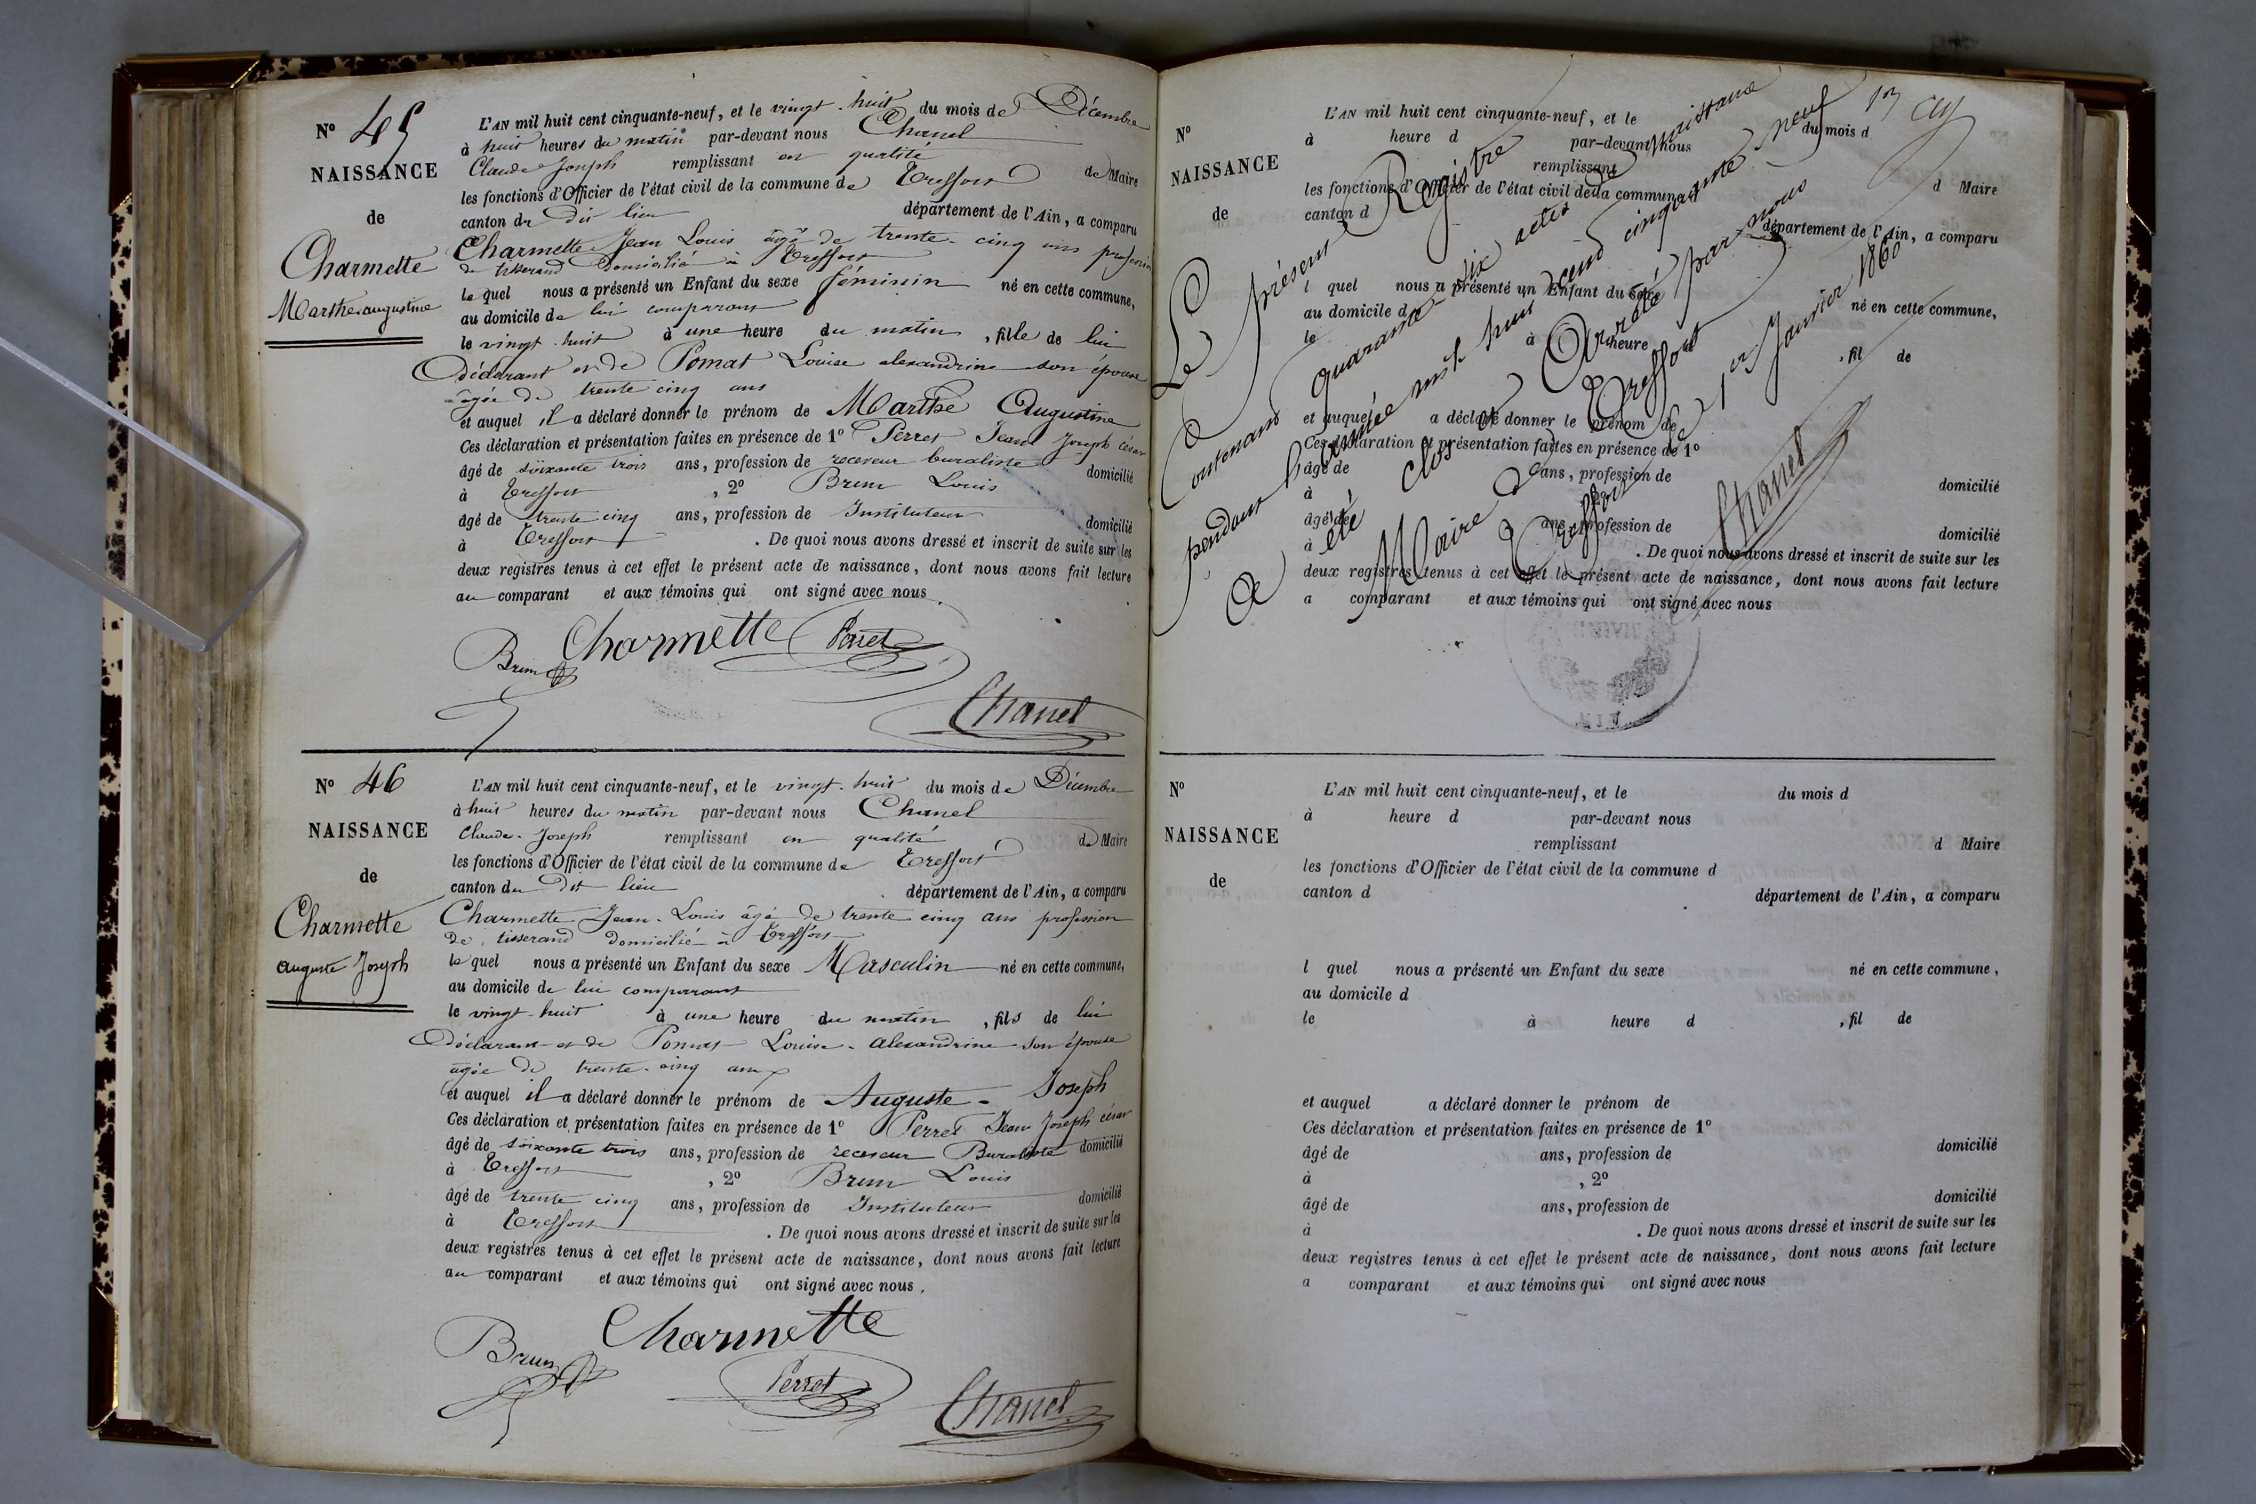 N° 45
NAISSANCE
de
Charmette
Marthe augustine
L'AN mil huit cent cinquante-neuf, et le vingt-huit du mois de Décembre
à huit heures du matin par-devant nous Chanel
Claude Joseph remplissant en qualité de Maire
les fonctions d'Officier de l'état civil de la commune de Treffort
canton du dit lieu département de l'Ain, a comparu
Charmette Jean Louis âgé de trente-cinq ans profession
de tisserand domicilié à Treffort
le quel nous a présenté un Enfant du sexe féminin né en cette commune,
au domicile de lui comparant
le vingt-huit à une heure du matin, fille de lui
Déclarant et de Pomat Louise alexandrine son épouse
âgée de trente cinq ans
et auquel il a déclaré donner le prénom de Marthe Augustine
Ces déclaration et présentation faites en présence de 1° Perret Jean Joseph césar
âgé de soixante trois ans, profession de receveur buraliste domicilié
à Treffort, 2° Brun Louis
âgé de trente cinq ans, profession de Instituteur domicilié
à Treffort. De quoi nous avons dressé et inscrit de suite sur les
deux registres tenus à cet effet le présent acte de naissance, dont nous avons fait lecture
au comparant et aux témoins qui ont signé avec nous.
Brun Charmette Perret
Chanel
N° 46
NAISSANCE
de
Charmette
auguste Joseph
L'AN mil huit cent cinquante-neuf, et le vingt-huit du mois de Décembre
à huit heures du matin par-devant nous Chanel
Claude-Joseph remplissant en qualité de Maire
les fonctions d'Officier de l'état civil de la commune de Treffort
canton du Dit lieu département de l'Ain, a comparu
Charmette Jean-Louis âgé de trente cinq ans profession
de tisserand domicilié à Treffort
le quel nous a présenté un Enfant du sexe Masculin né en cette commune,
au domicile de lui comparant
le vingt-huit à une heure du matin, fils de lui
Déclarant et de Pomat Louise-Alexandrine son épouse
âgée de trente-cinq ans
et auquel il a déclaré donner le prénom de Auguste-Joseph
Ces déclaration et présentation faites en présence de 1° Perret Jean Joseph césar
âgé de soixante trois ans, profession de receveur Buraliste domicilié
à Treffort, 2° Brun Louis
âgé de trente cinq ans, profession de Instituteur domicilié
à Treffort. De quoi nous avons dressé et inscrit de suite sur les
deux registres tenus à cet effet le présent acte de naissance, dont nous avons fait lecture
au comparant et aux témoins qui ont signé avec nous.
Brun Charmette
Perret
Chanel
N°
NAISSANCE
de
L'AN mil huit cent cinquante-neuf, et le du mois d
à heure d par-devant nous
remplissant d Maire
les fonctions d'Officier de l'état civil de la commune d
canton d département de l'Ain, a comparu
l quel nous a présenté un Enfant du sexe né en cette commune,
au domicile d
le à heure d, fil de
et auquel a déclaré donner le prénom de
Ces déclaration et présentation faites en présence de 1°
âgé de ans, profession de domicilié
à, 2°
âgé de ans, profession de domicilié
à. De quoi nous avons dressé et inscrit de suite sur les
deux registres tenus à cet effet le présent acte de naissance, dont nous avons fait lecture
a comparant et aux témoins qui ont signé avec nous
Le présent Registre de naissance
Contenant quarante six actes
pendant l'année mil huit cent cinquante neuf
a été clos et Arrêté par nous
Maire de Treffort
Treffort le 1er Janvier 1860
Chanel
N°
NAISSANCE
de
L'AN mil huit cent cinquante-neuf, et le du mois d
à heure d par-devant nous
remplissant d Maire
les fonctions d'Officier de l'état civil de la commune d
canton d département de l'Ain, a comparu
l quel nous a présenté un Enfant du sexe né en cette commune,
au domicile d
le à heure d, fil de
et auquel a déclaré donner le prénom de
Ces déclaration et présentation faites en présence de 1°
âgé de ans, profession de domicilié
à, 2°
âgé de ans, profession de domicilié
à. De quoi nous avons dressé et inscrit de suite sur les
deux registres tenus à cet effet le présent acte de naissance, dont nous avons fait lecture
a comparant et aux témoins qui ont signé avec nous